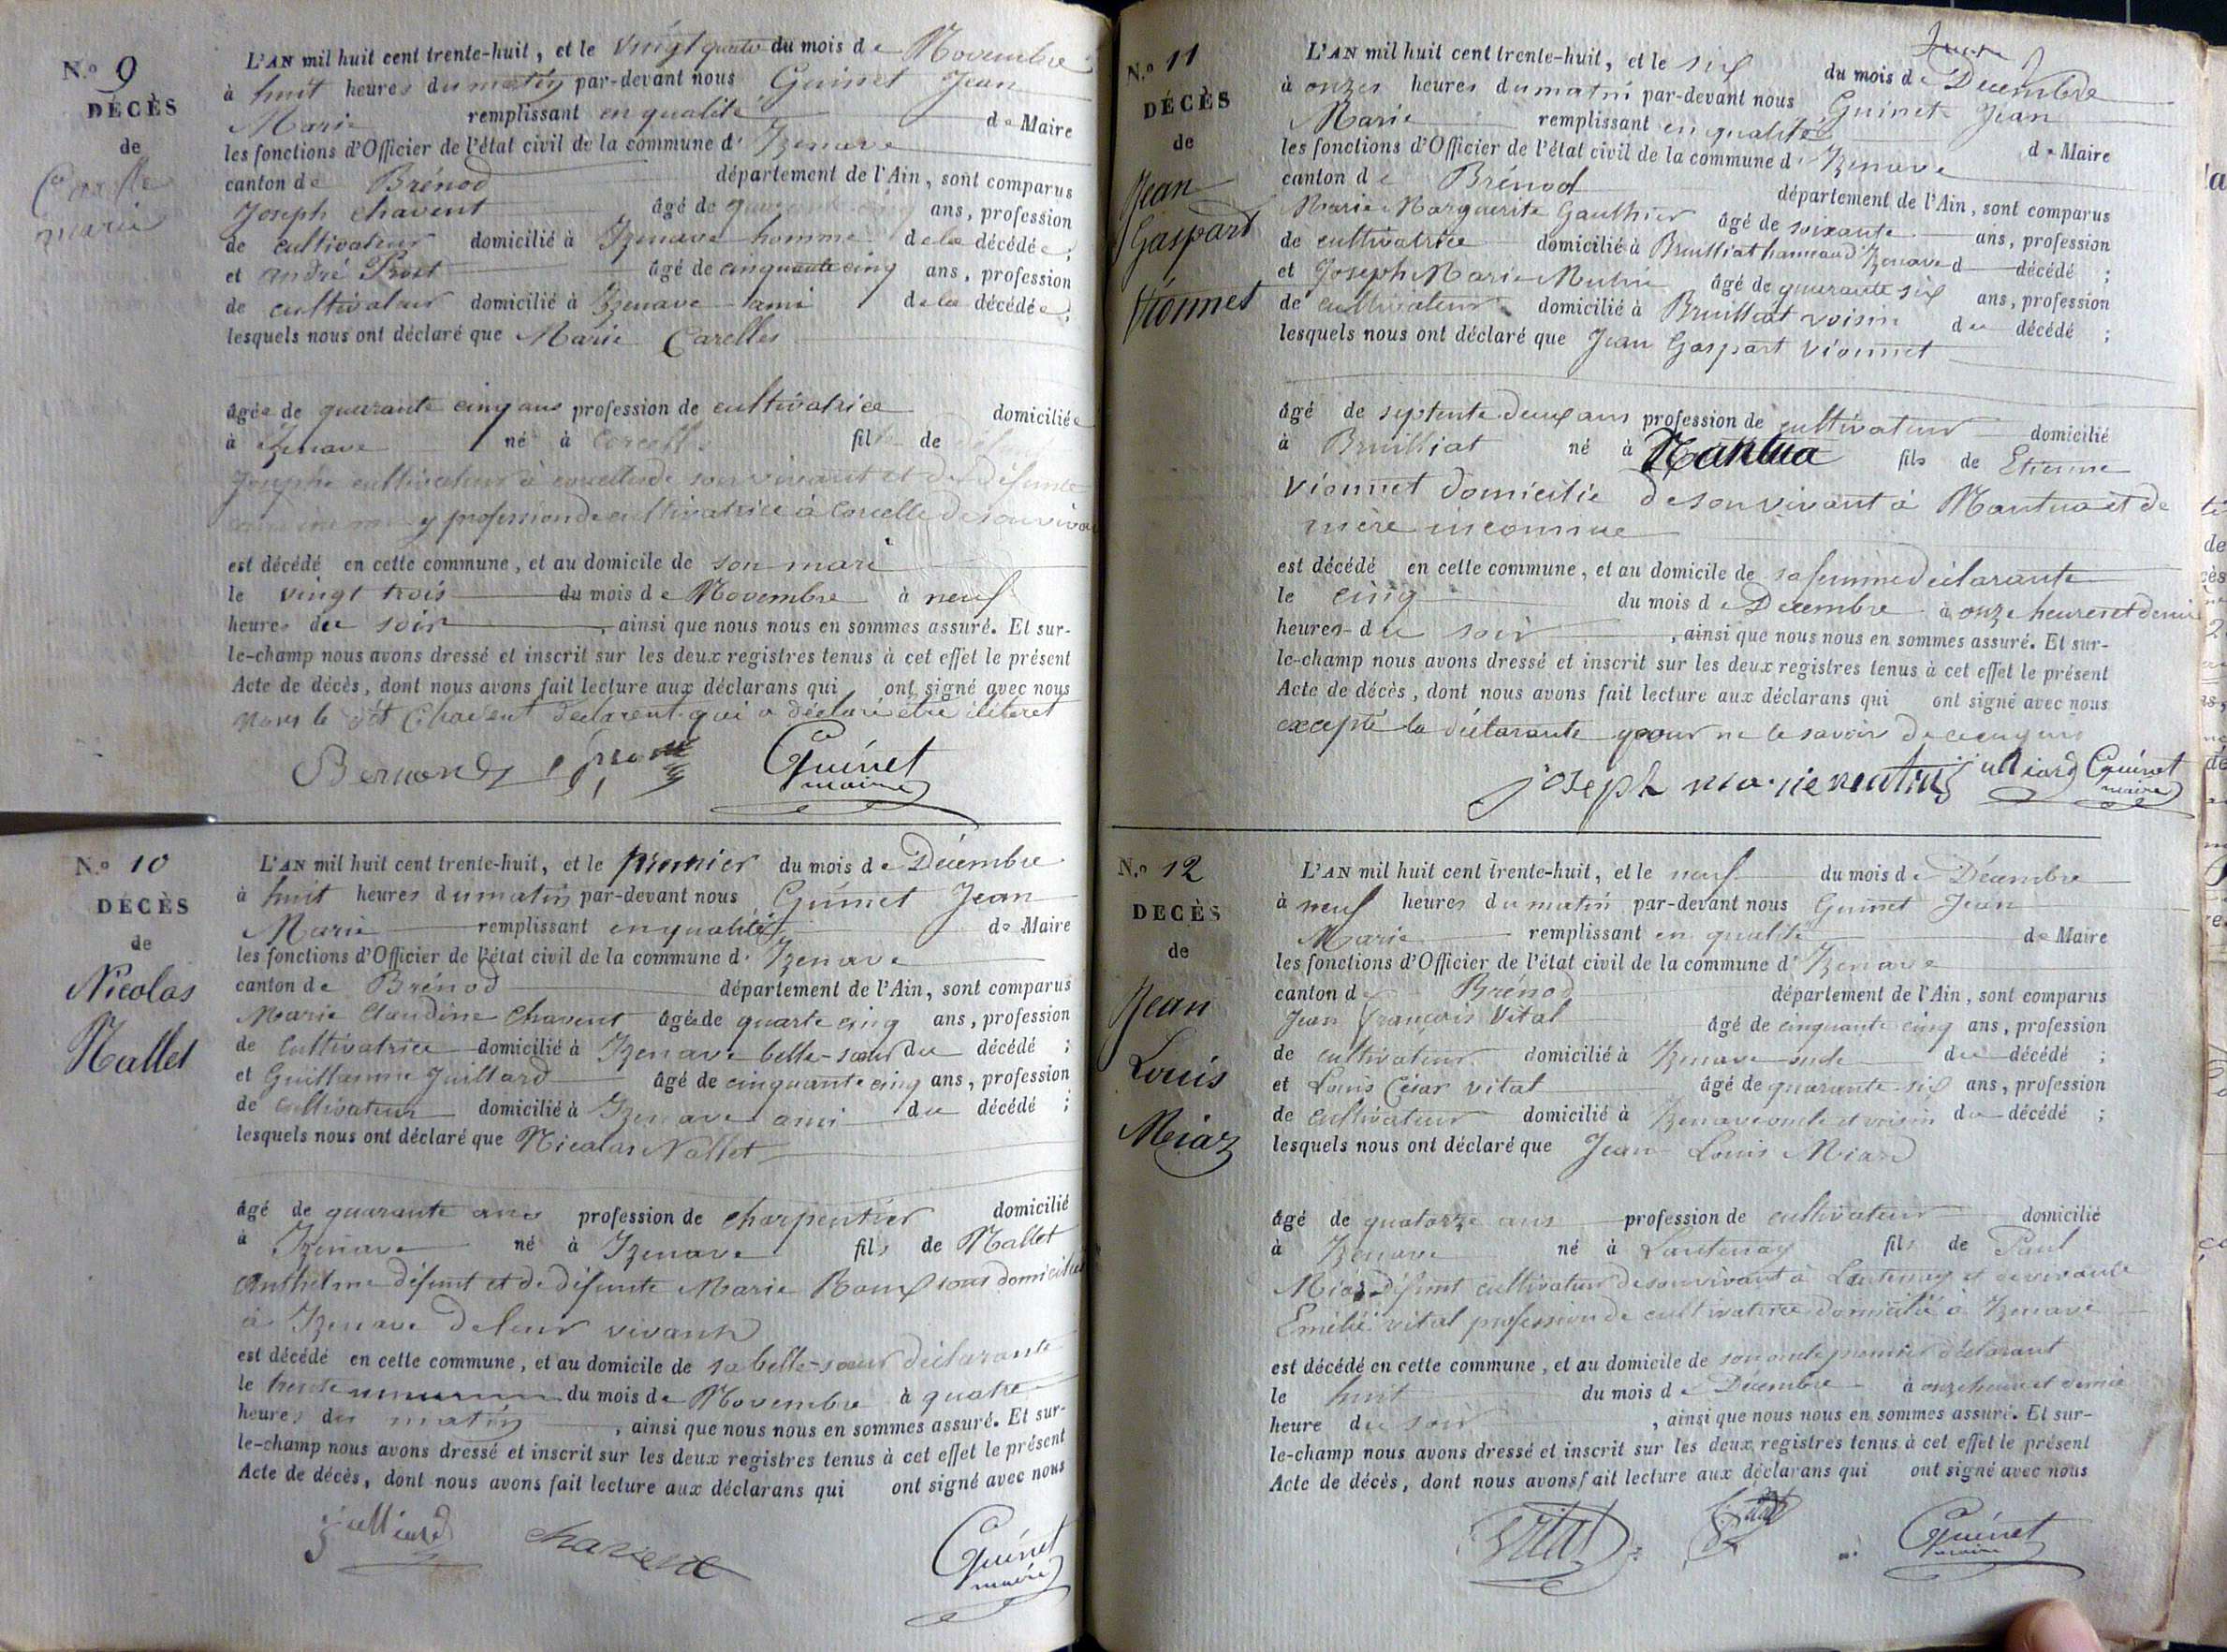 N.o 9
DÉCÈS
de
marie
L'AN mil huit cent trente-huit, et le vingt quatre du mois de Novembre
à huit heures du matin par-devant nous Guinet Jean
Marie remplissant en qualité de Maire
les fonctions d'Officier de l'état civil de la commune d' Izenave
canton de Brénod département de l'Ain, sont comparus
Joseph Chavent âgé de quarante cinq ans, profession
de cultivateur domicilié à Izenave homme de la décédée;
et andré Prost âgé de cinquante cinq ans, profession
de cultivateur domicilié à Izenave ami de la décédée;
lesquels nous ont déclaré que Marie Carelles
âgée de quarante cinq ans profession de cultivatrice domiciliée
à Izenave né à Corcelle fille de
Josephe cultivateur à corcelle de son vivant et de défunte
profession de cultivatrice à Corcelle de son vivant
est décédé en cette commune, et au domicile de son mari
le vingt trois du mois de Novembre à neuf
heures du soir, ainsi que nous nous en sommes assuré. Et sur-
le-champ nous avons dressé et inscrit sur les deux registres tenus à cet effet le présent
Acte de décès, dont nous avons fait lecture aux déclarans qui ont signé avec nous
le dt Chavent déclarent qui a déclaré être iliteret
Guinet
maire
N.o 10
DÉCÈS
de
Nicolas
Nallet
L'AN mil huit cent trente-huit, et le premier du mois de Décembre
à huit heures du matin par-devant nous Guinet Jean
Marie remplissant en qualité de Maire
les fonctions d'Officier de l'état civil de la commune d' Izenave
canton de Brénod département de l'Ain, sont comparus
Marie Claudine Chavent âgée de quarte cinq ans, profession
de cultivatrice domicilié à Izenave belle-sœur du décédé;
et Guillaume Juillard âgé de cinquante cinq ans, profession
de cultivateur domicilié à Izenave ami du décédé;
lesquels nous ont déclaré que Nicolas Nallet
âgé de quarante ans profession de charpentier domicilié
à Izenave né à Izenave fils de Nallet
Anthelme défunt et de défunte Marie Roux tous domiciliés
à Izenave de leur vivant
est décédé en cette commune, et au domicile de sa belle-sœur déclarante
le trente du mois de Novembre à quatre
heures du matin, ainsi que nous nous en sommes assuré. Et sur-
le-champ nous avons dressé et inscrit sur les deux registres tenus à cet effet le présent
Acte de décès, dont nous avons fait lecture aux déclarans qui ont signé avec nous
juilliard chavent Guinet
maire
N.o 11
DÉCÈS
de
Jean
Gaspard
Vionnet
L'AN mil huit cent trente-huit, et le six du mois de Decembre
à onzes heures du matin par-devant nous Guinet Jean
Marie remplissant en qualité de Maire
les fonctions d'Officier de l'état civil de la commune d' Izenave
canton de Brénod département de l'Ain, sont comparus
Marie Marguerite Gauthier âgé de soixante ans, profession
de cultivatrice domicilié à Bruilliat hameau d'Izenave d décédé;
et Joseph Marie Mutin âgé de quarante six ans, profession
de cultivateur domicilié à Bruilliat voisin du décédé;
lesquels nous ont déclaré que Jean Gaspart Vionnet
âgé de septente deux ans profession de cultivateur domicilié
à Bruilliat né à Nantua fils de Etienne
Vionnet domicilié de son vivant à Nantua et de
mère inconnue
est décédé en cette commune, et au domicile de sa femme déclarante
le cinq du mois de Decembre à onze heures et demie
heures du soir, ainsi que nous nous en sommes assuré. Et sur-
le-champ nous avons dressé et inscrit sur les deux registres tenus à cet effet le présent
Acte de décès, dont nous avons fait lecture aux déclarans qui ont signé avec nous
excepté la déclarante pour ne le savoir de ce enquis
joseph marie mutin julliard Guinet
maire
N.o 12
DÉCÈS
de
Jean
Louis
Miaz
L'AN mil huit cent trente-huit, et le neuf du mois de Décembre
à neuf heures du matin par-devant nous Guinet Jean
Marie remplissant en qualité de Maire
les fonctions d'Officier de l'état civil de la commune d' Izenave
canton de Brénod département de l'Ain, sont comparus
Jean françois Vital âgé de cinquante cinq ans, profession
de cultivateur domicilié à Izenave oncle du décédé;
et Louis César vital âgé de quarante six ans, profession
de cultivateur domicilié à Izenave oncle et voisin du décédé;
lesquels nous ont déclaré que Jean Louis Miaz
âgé de quatorze ans profession de cultivateur domicilié
à Izenave né à Lantenay fils de Paul
Miaz défunt cultivateur de son vivant à Lantenay et de vivante
Emélie vital profession de cultivatrice domicilié à Izenave
est décédé en cette commune, et au domicile de son oncle premier déclarant
le huit du mois de Décembre à onze heure et demie
heure du soir, ainsi que nous nous en sommes assuré. Et sur-
le-champ nous avons dressé et inscrit sur les deux registres tenus à cet effet le présent
Acte de décès, dont nous avons fait lecture aux déclarans qui ont signé avec nous
Vital Guinet
maire